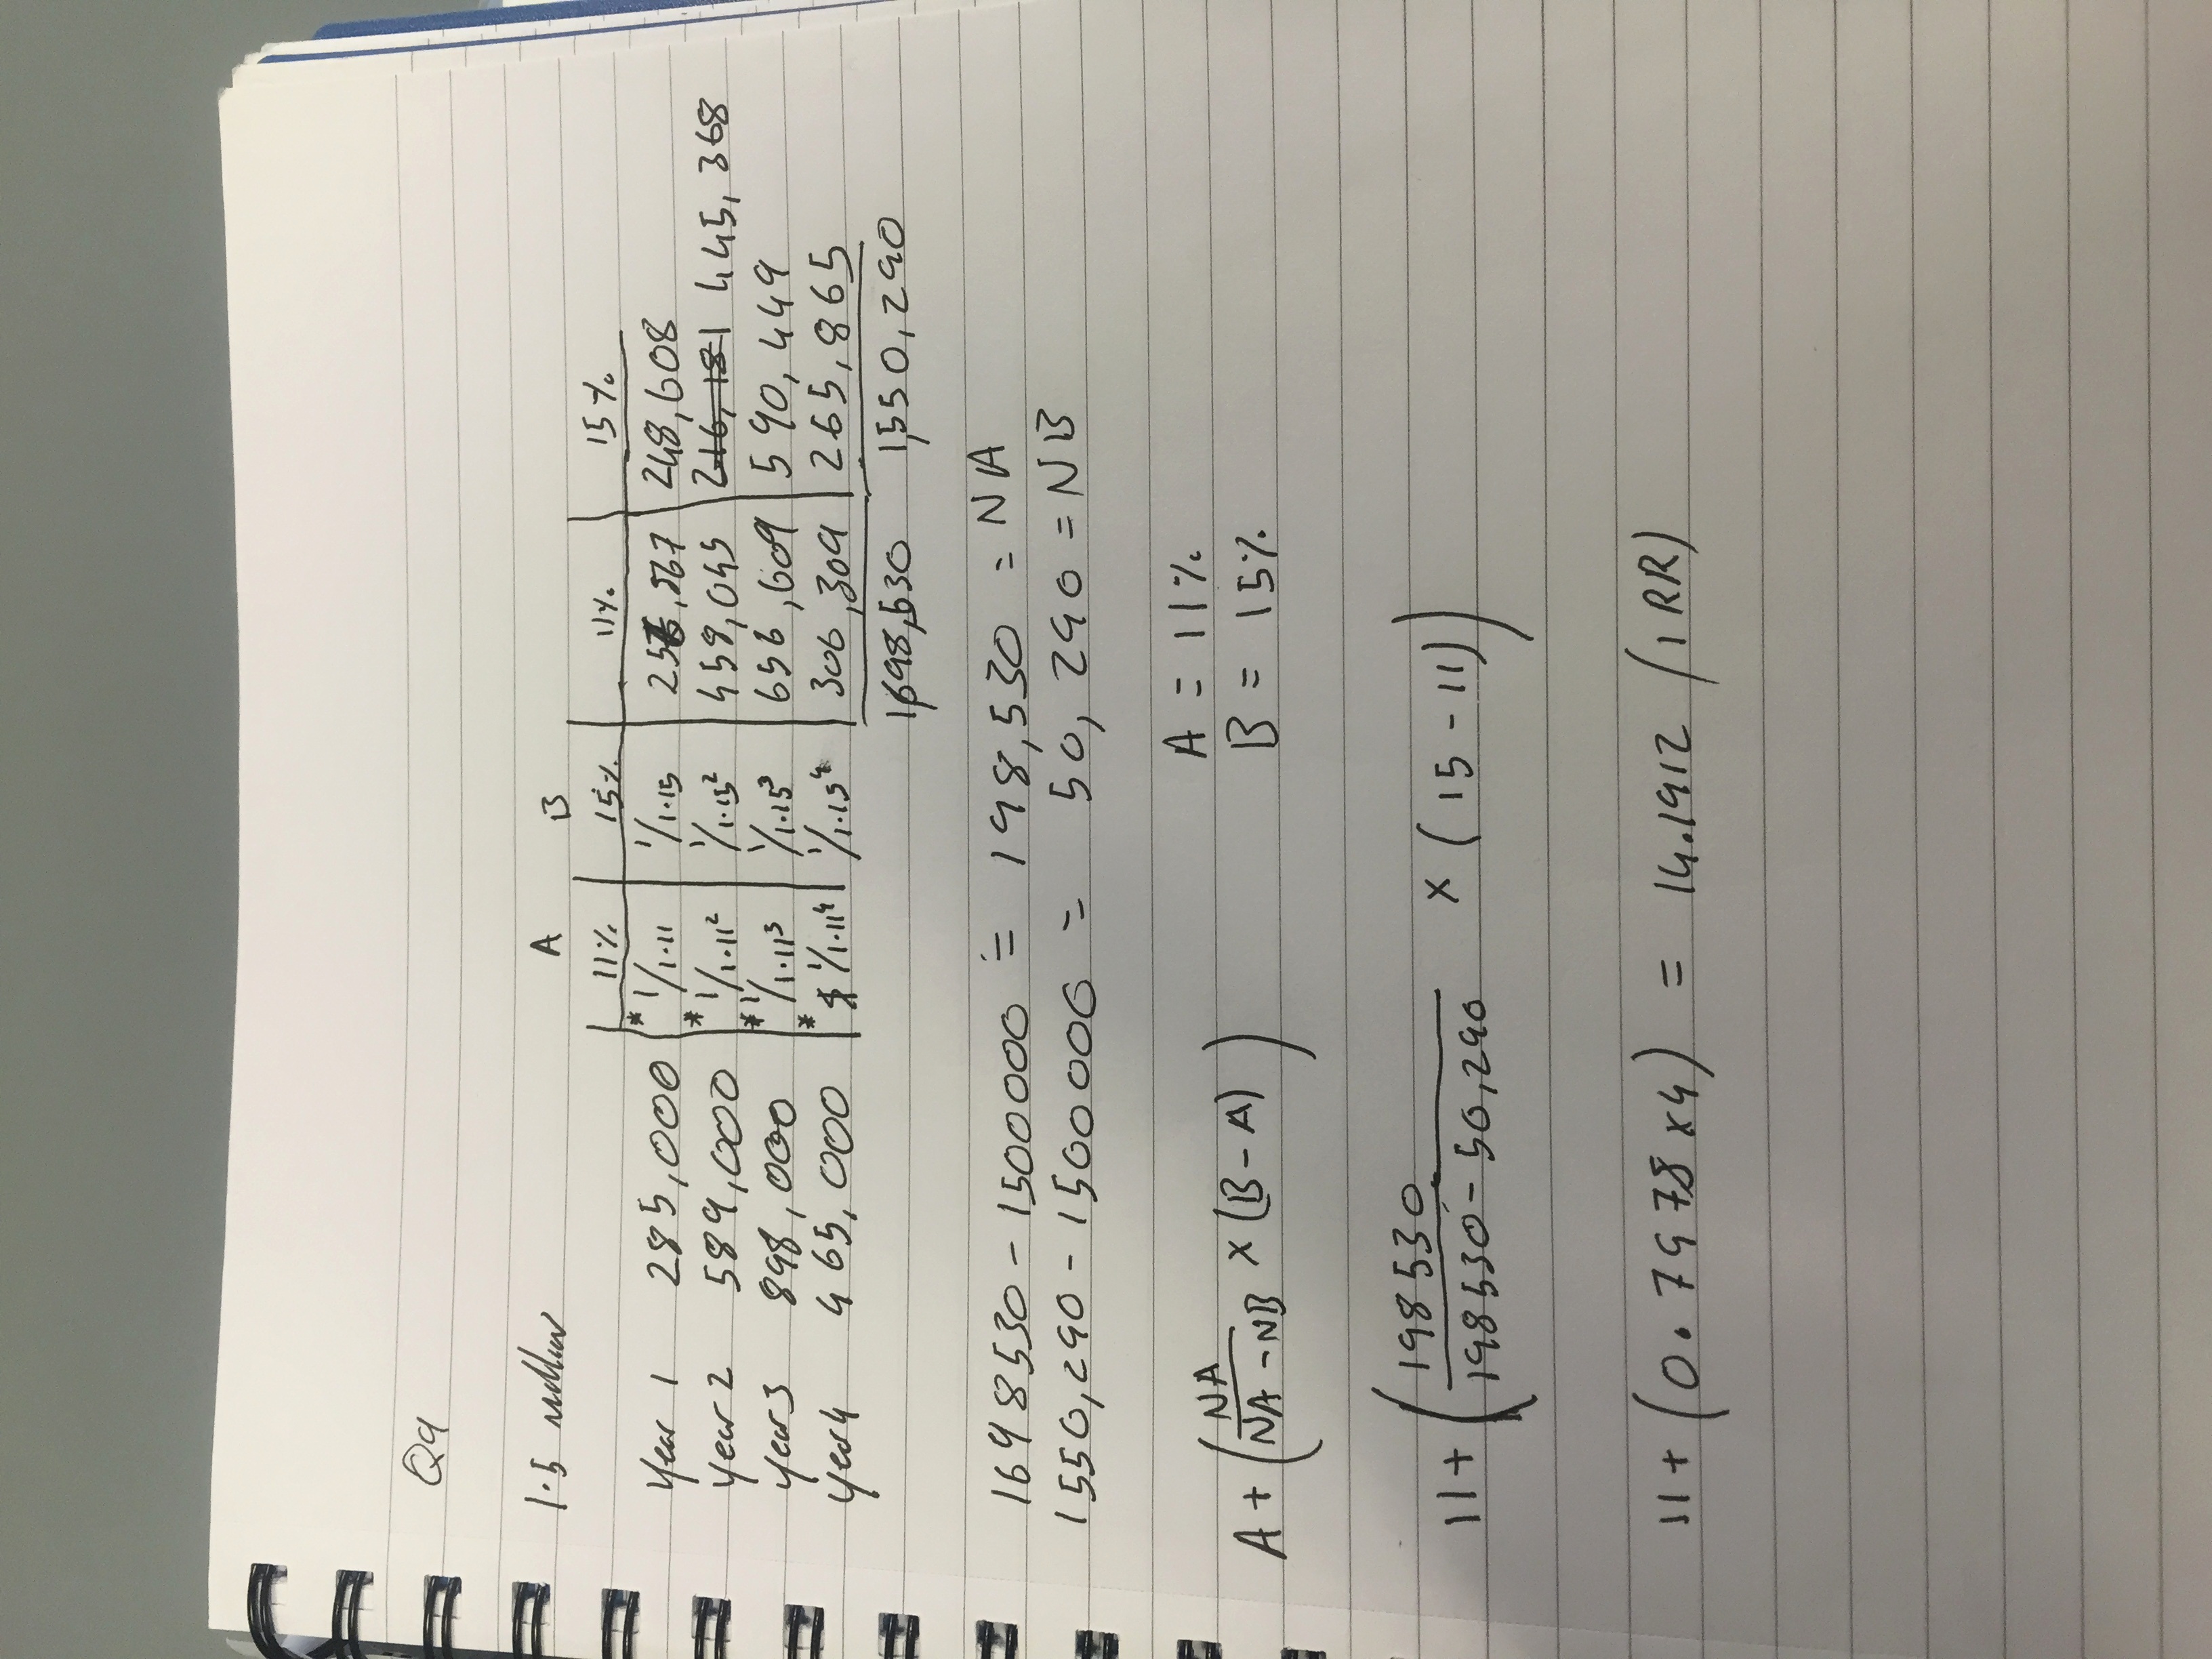 Q9
1.5 million
A B
11% 15% 11% 15%
Year 1 285,000 * 1/1.11 1/1.15 256,867 248,608
Year 2 589,000 * 1/1.11² 1/1.15² 459,045 216,181 445,368
Year 3 898,000 * 1/1.11³ 1/1.15³ 656,609 590,449
Year 4 465,000 * 1/1.11⁴ 1/1.15⁴ 306,309 265,865
1,698,530 1,550,290
1698530 - 1500000 = 198,530 = NA
1550,290 - 1500000 = 50,290 = NB
A = 11%
B = 15%
A + (NA/NA - NB × (B - A))
11 + (198530/198530 - 50,290 × (15 - 11))
11 + (0.7978 × 4) = 14.1912 (IRR)